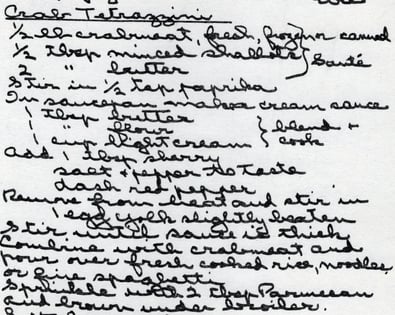 Crab Tetrazzini
1/2 lb crabmeat, fresh, frozen or canned
1/2 tbsp minced shallots } Sauté
2 " butter
Stir in 1/2 tsp paprika
In saucepan make cream sauce
1 tbsp butter
1 " flour } blend +
1 cup light cream cook
Add 1 tbsp sherry
salt + pepper to taste
dash red pepper
Remove from heat and stir in
1 egg yolk slightly beaten
Stir until sauce is thick
Combine with crabmeat and
pour over fresh cooked rice, noodles,
or fine spaghetti
Sprinkle with 2 tbsp Parmesan
and brown under broiler.